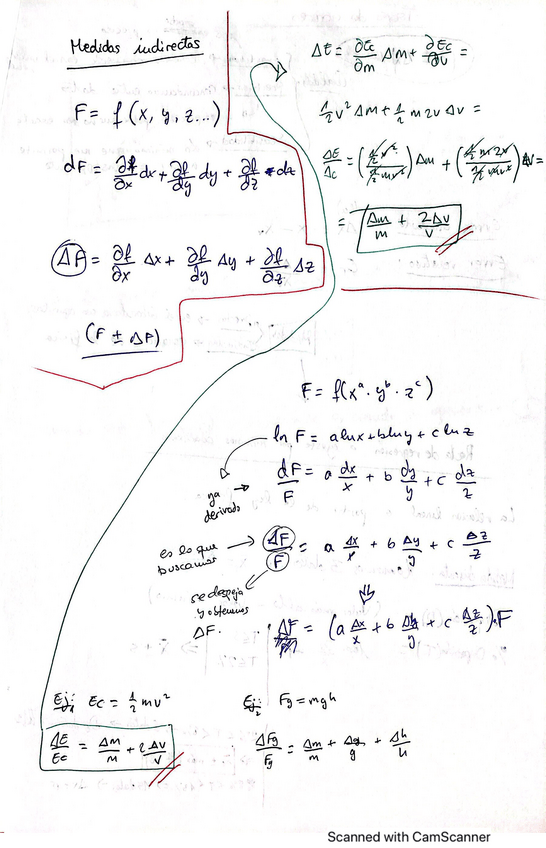 Medidas indirectas
F = f (x, y, z...)
dF = ∂f/∂x dx + ∂f/∂y dy + ∂f/∂z dz
ΔF = ∂f/∂x Δx + ∂f/∂y Δy + ∂f/∂z Δz
(F ± ΔF)
ΔE = ∂Ec/∂m Δm + ∂Ec/∂v =
1/2 v² Δm + 1/2 m 2v Δv =
ΔE/Δc = (1/2 v²/1/2 mv²) Δm + (1/2 m 2v/1/2 mv²) Δv =
= Δm/m + 2Δv/v
F = f(xᵃ · yᵇ · zᶜ)
ln F = a ln x + b ln y + c ln z
ya derivado → dF/F = a dx/x + b dy/y + c dz/z
es lo que buscamos → ΔF/F = a Δx/x + b Δy/y + c Δz/z
se despeja
y obtenemos
ΔF.
ΔF = (a Δx/x + b Δy/y + c Δz/z) · F
Ej:₁ Ec = 1/2 mv²
ΔE/Ec = Δm/m + 2Δv/v
Ej:₂ Fg = mgh
ΔFg/Fg = Δm/m + Δg/g + Δh/h
Scanned with CamScanner